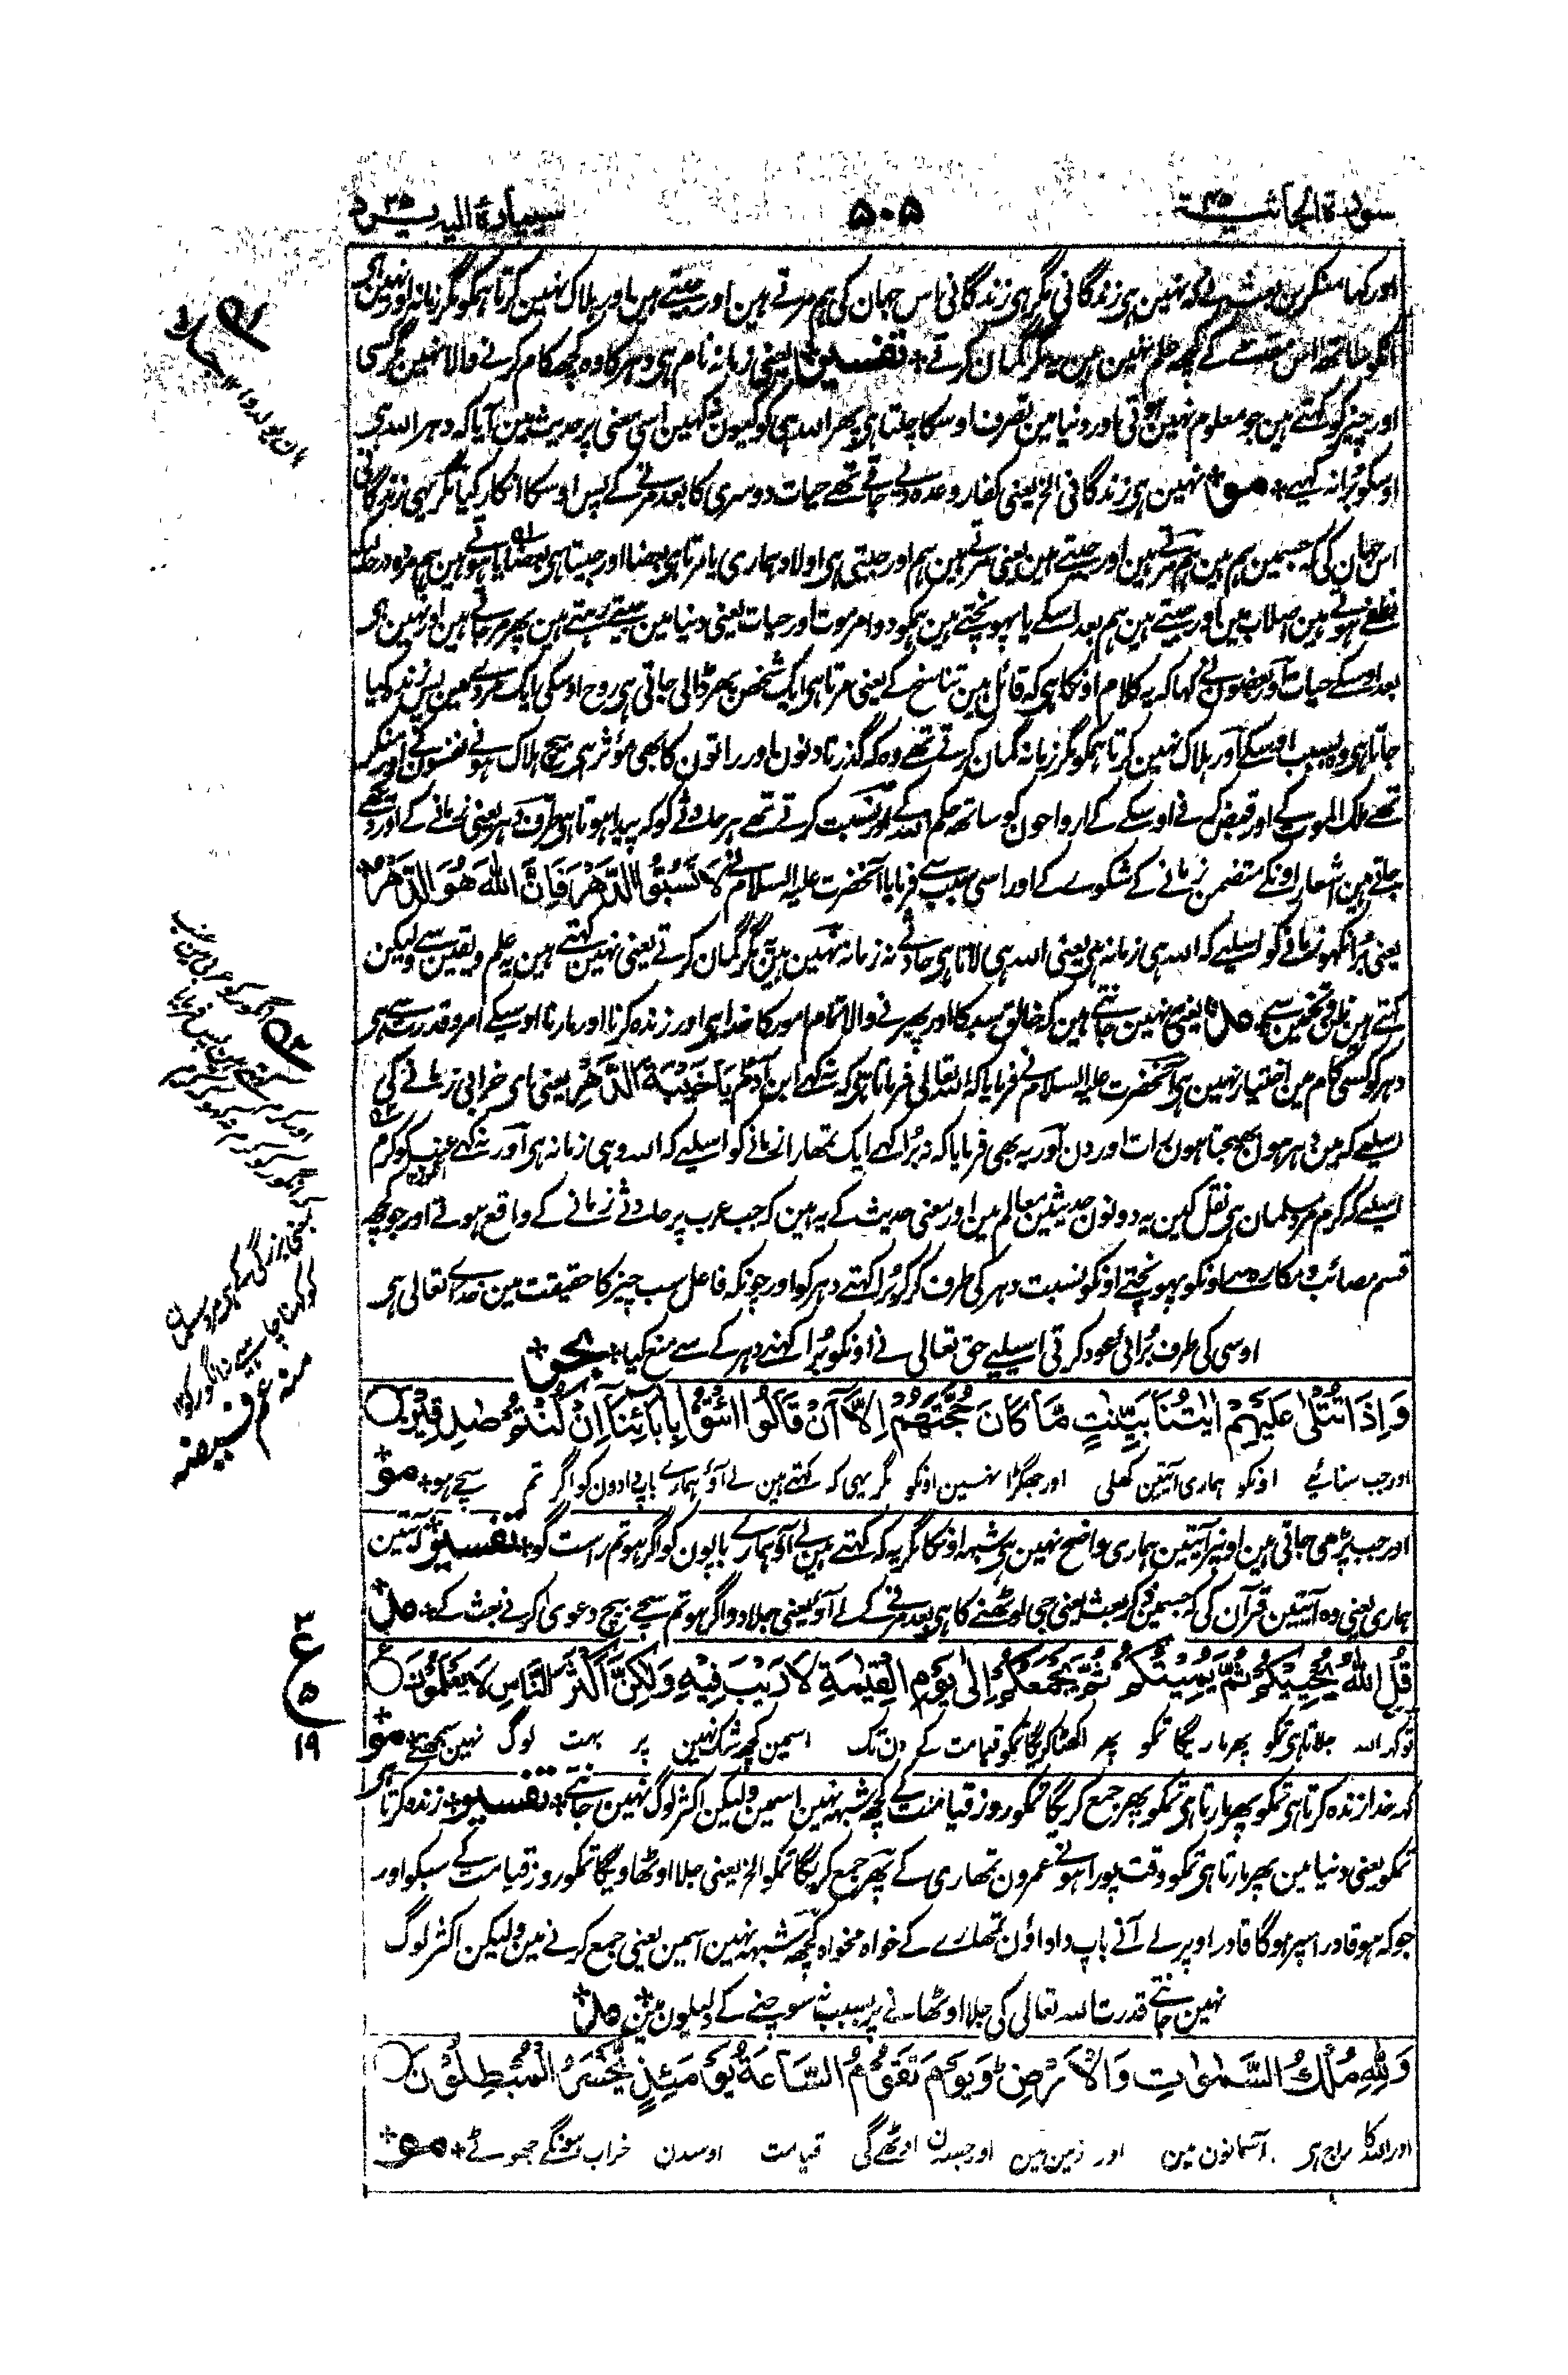 سورة الجاثية ۴۵
۵۰۵
سیپارة الیه یرد ۲۵
اور کہا منکرین نے کہ نہین ہی زندگانی مگر ہی زندگانی اس جہان کی ہم مرتے ہین اور جیتے ہین اور ہلاک نہین کرتا ہمکو مگر زمانہ اور نہین ہی
انکو ساتھ اس کے کچھ علم نہین ہین یہ مگر گمان کرتے + تفسیر + یعنی زمانہ نام ہی دہر کا وہ کچھ کام کرنے والا نہین مگر کسی
اور چیز کو کہتے ہین جو معلوم نہین ہوتی اور دنیا مین تصرف اوسکا چلتا ہی پھر اللہ ہی کو کیون نہ کہین اسی معنی پر حدیث مین آیا کہ دہر اللہ ہی
اوسکو برا نہ کہیے + مو + نہین ہی زندگانی الخ یعنی کفار وعدہ دیے جاتے تھے حیات دوسری کا بعد مرنے کے پس اوسکا انکار کیا مگر یہی زندگانی
اس جہان کی کہ جسمین ہم ہین ہم مرتے ہین اور جیتے ہین یعنی مرتے ہین ہم اور جیتی ہی اولاد ہماری یا مرتا ہی بعضا اور جیتا ہی بعضا یا ہوتے ہین ہم مردہ درحالیکہ
نطفے ہوتے ہین اصلاب مین اور جیتے ہین ہم بعد اسکے یا پہونچتے ہین ہمکو دو امر موت اور حیات یعنی دنیا مین جیتے رہتے ہین پھر مر جاتے ہین اور نہین ہی
بعد اوسکے حیات اور بعضون نے کہا کہ یہ کلام اونکا ہی کہ قائل ہین تناسخ کے یعنی مرتا ہی ایک شخص پھر ڈالی جاتی ہی روح اوسکی ایک مردے مین پس زندہ کیا
جاتا ہی وہ بسبب اوسکے اور ہلاک نہین کرتا ہمکو مگر زمانہ گمان کرتے تھے وہ کہ گذرنا دنون اور راتون کا بھی مؤثر ہی بیچ ہلاک ہونے نفسون کے اور منکر
تھے ملک الموت کے اور قبض کرنے اوسکے کے ارواحون کو ساتھ حکم اللہ کے اور نسبت کرتے تھے ہر حادثے کو کہ پیدا ہوتا ہی طرف دہر یعنی زمانے کے اور دیکھے
جاتے ہین اشعار اونکے متضمن زمانے کے شکوے کے اور اسی سبب سے فرمایا آنحضرت علیہ السلام نے لَا تَسُبُّوا الدَّهْرَ فَإِنَّ اللهَ هُوَ الدَّهْرُ +
یعنی برا نکہو زمانے کو اسلیے کہ اللہ ہی زمانہ ہی یعنی اللہ ہی لاتا ہی حادثے نہ زمانہ نہین ہین یہ مگر گمان کرتے یعنی نہین کہتے ہین یہ علم و یقین سے و لیکن
کہتے ہین ظن و تخمین سے + مل + یعنی نہین جانتے ہین کہ خالق سب کا اور پھیرنے والا تمام امور کا خدا ہی اور زندہ کرنا اور مارنا اوسیکے امر و قدرت سے ہی
دہر کو کسی کام مین اختیار نہین ہی آنحضرت علیہ السلام نے فرمایا کہ اللہ تعالی فرماتا ہی کہ نہ کہے ابن آدم يَا خَيْبَةَ الدَّهْرِ یعنی ای خرابی زمانے کی
اسلیے کہ مین دہر ہون بھیجتا ہون رات اور دن اور یہ بھی فرمایا کہ نہ برا کہے ایک تمھارا زمانے کو اسلیے کہ اللہ وہی زمانہ ہی اور نہ کہے عنب کو کرم
اسلیے کہ کرم مرد مسلمان ہی نقل کین یہ دونون حدیثین معالم مین اور معنی حدیث کے یہ ہین کہ جب عرب پر حادثے زمانے کے واقع ہوتے اور جو کچھ
قسم مصائب و مکارہ سے اونکو پہونچتے اونکو نسبت دہر کی طرف کرکر برا کہتے دہر کو اور چونکہ فاعل سب چیز کا حقیقت مین خداے تعالی ہی
اوسی کی طرف برائی عود کرتی اسیلیے حق تعالی نے اونکو برا کہنے دہر کے سے منع کیا + بحر +
وَإِذَا تُتْلَىٰ عَلَيْهِمْ اٰيٰتُنَا بَيِّنٰتٍ مَّا كَانَ حُجَّتَهُمْ اِلَّآ اَنْ قَالُوا ائْتُوْا بِاٰبَآئِنَآ اِنْ كُنْتُمْ صٰدِقِيْنَ
اور جب سنائیے اونکو ہماری آیتین کھلی اور جھگڑا نہین اونکو مگر یہی کہ کہتے ہین لے آؤ ہمارے باپ دادون کو اگر تم سچے ہو + مو +
اور جب پڑھی جاتی ہین اونپر آیتین ہماری واضح نہین ہی شبہہ اونکا مگر یہ کہ کہتے ہین لے آؤ ہمارے باپون کو اگر ہو تم راست گو + تفسیر + آیتین
ہماری یعنی وہ آیتین قرآن کی کہ جسمین ذکر بعث یعنی جی اوٹھنے کا ہی بعد مرنے کے لے آؤ یعنی جلا دو اگر ہو تم سچے بیچ دعوی کرنے بعث کے + مل +
قُلِ اللهُ يُحْيِيْكُمْ ثُمَّ يُمِيْتُكُمْ ثُمَّ يَجْمَعُكُمْ اِلٰى يَوْمِ الْقِيٰمَةِ لَا رَيْبَ فِيْهِ وَلٰكِنَّ اَكْثَرَ النَّاسِ لَا يَعْلَمُوْنَ
تو کہہ اللہ جلاتا ہی تمکو پھر ماریگا تمکو پھر اکٹھا کریگا تمکو قیامت کے دن تک اسمین کچھ شک نہین پر بہت لوگ نہین سمجھتے + مو +
کہہ خدا زندہ کرتا ہی تمکو پھر مارتا ہی تمکو پھر جمع کریگا تمکو روز قیامت کے کچھ شبہہ نہین اسمین و لیکن اکثر لوگ نہین جانتے + تفسیر + زندہ کرتا ہی
تمکو یعنی دنیا مین پھر مارتا ہی تمکو وقت پورا ہونے عمرون تمھاری کے پھر جمع کریگا تمکو الخ یعنی جلا اوٹھاویگا تمکو روز قیامت کے سبکو اور
جو کہ ہو قادر اسپر ہوگا قادر اوپر لے آنے باپ داداؤن تمھارے کے خواہ مخواہ کچھ شبہہ نہین اسمین یعنی جمع کرنے مین و لیکن اکثر لوگ
نہین جانتے قدرت اللہ تعالی کی جلا اوٹھانے پر بسبب نہ سوچنے کے دلیلون مین + مل +
وَلِلّٰهِ مُلْكُ السَّمٰوٰتِ وَالْاَرْضِ وَيَوْمَ تَقُوْمُ السَّاعَةُ يَوْمَئِذٍ يَّخْسَرُ الْمُبْطِلُوْنَ
اور اللہ کا راج ہی آسمانون مین اور زمین مین اور جسدن اوٹھے گی قیامت اوسدن خراب ہونگے جھوٹے + مو +
۳
ع
۵
۱۹